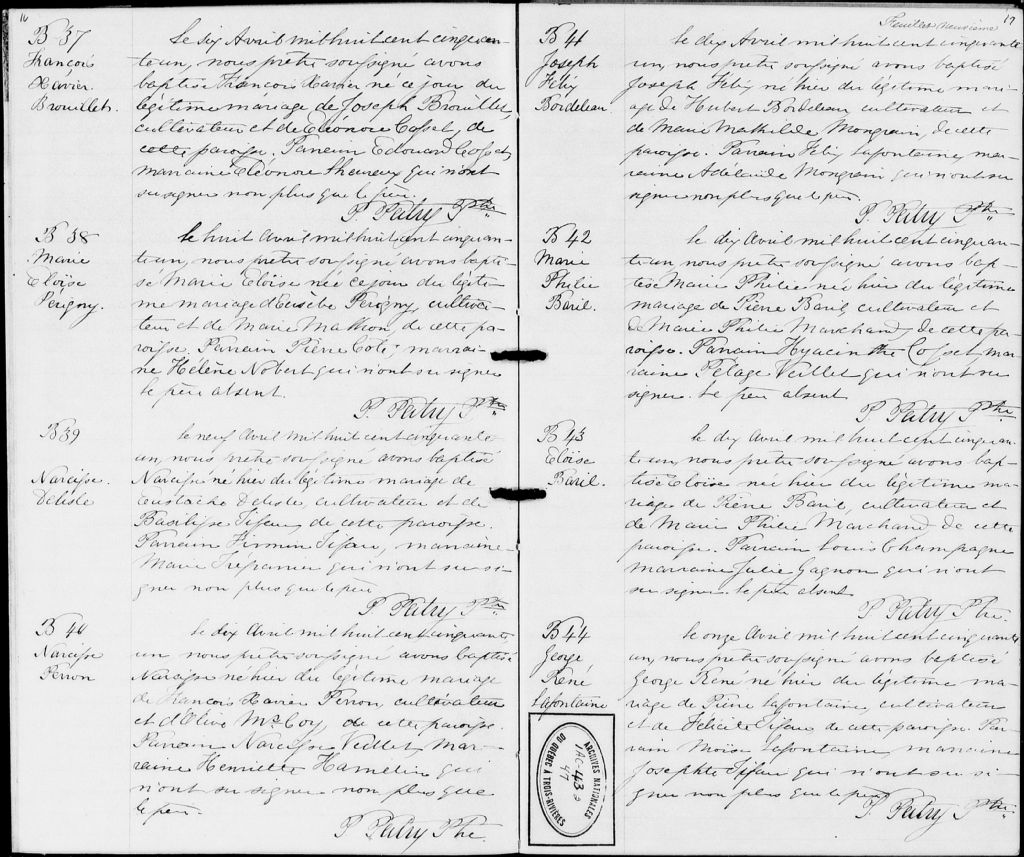 16
B 37
François
Xavier
Brouillet.
Le six Avril mil huit cent cinquan-
te un, nous prêtre soussigné avons
baptisé François Xavier né ce jour du
légitime mariage de Joseph Brouillet,
cultivateur et de Eléonore Cosset, de
cette paroisse. Parrain Edouard Cosset,
marraine Eléonore Lheureux qui n'ont
su signer non plus que le père.
P. Patry Ptre
B 38
Marie
Eloïse
Perigny.
Le huit Avril mil huit cent cinquan-
te un, nous prêtre soussigné avons bapti-
sé Marie Eloise née ce jour du légiti-
me mariage d'Eusèbe Perigny, cultiva-
teur et de Marie Mathon, de cette pa-
roisse. Parrain Pièrre Coté; marrai-
ne Hélène Nobert qui n'ont su signer
le père absent.
P. Patry Ptre
B 39
Narcisse.
Delisle
Le neuf Avril mil huit cent cinquante
un, nous prêtre soussigné avons baptisé
Narcisse né hier du légitime mariage de
Eustache Delisle, cultivateur et de
Basilisse Tifau, de cette paroisse.
Parrain Firmin Tifau, marraine
Marie Trepanier qui n'ont su si-
gner non plus que le père
P. Patry Ptre
B 40
Narcisse
Perron
Le dix Avril mil huit cent cinquante
un, nous prêtre soussigné avons baptisé
Narcisse né hier du légitime mariage
de François Xavier Perron, cultivateur
et d'Olive McCoy, de cette paroisse.
Parrain Narcisse Veillet, mar-
raine Henriette Hamelin qui
n'ont su signer non plus que
le père.
P. Patry Ptre
Feuillet neuvième 17
B 41
Joseph
Félix
Bordeleau
Le dix Avril mil huit cent cinquante
un, nous prêtre soussigné avons baptisé
Joseph Félix né hier du légitime mari-
age de Hubert Bordeleau cultivateur et
de Marie Mathilde Mongrain, de cette
paroisse. Parrain Félix Lafontaine, mar-
raine Adelaïde Mongrain qui n'ont su
signer non plus que le père.
P. Patry Ptre
B 42
Marie
Philie
Baril.
Le dix Avril mil huit cent cinquan-
te un nous prêtre soussigné avons bap-
tisé Marie Philie née hier du légitime
mariage de Pièrre Baril cultivateur et
de Marie Philie Marchand, de cette pa-
roisse. Parrain Hyacinthe Cosset, mar-
raine Pélage Veillet qui n'ont su
signer. Le père absent
P. Patry Ptre
B 43
Eloïse
Baril.
Le dix Avril mil huit cent cinquan-
te un, nous prêtre soussigné avons bap-
tisé Eloise née hier du légitime ma-
riage de Pièrre Baril, cultivateur et
de Marie Philie Marchand de cette
paroisse. Parrain Louis Champagne
marraine Julie Gagnon qui n'ont
su signer. Le père absent
P. Patry Ptre.
B 44
George
René
Lafontaine
Le onze Avril mil huit cent cinquante
un, nous prêtre soussigné avons baptisé
George René né hier du légitime ma-
riage de Pièrre Lafontaine, cultivateur
et de Félicité Tifau de cette paroisse. Par-
rain Moïse Lafontaine, marraine
Josephte Tifau qui n'ont su si-
gner non plus que le père
P. Patry Ptre
ARCHIVES NATIONALES
1AC-443
47
DU QUÉBEC À TROIS-RIVIÈRES